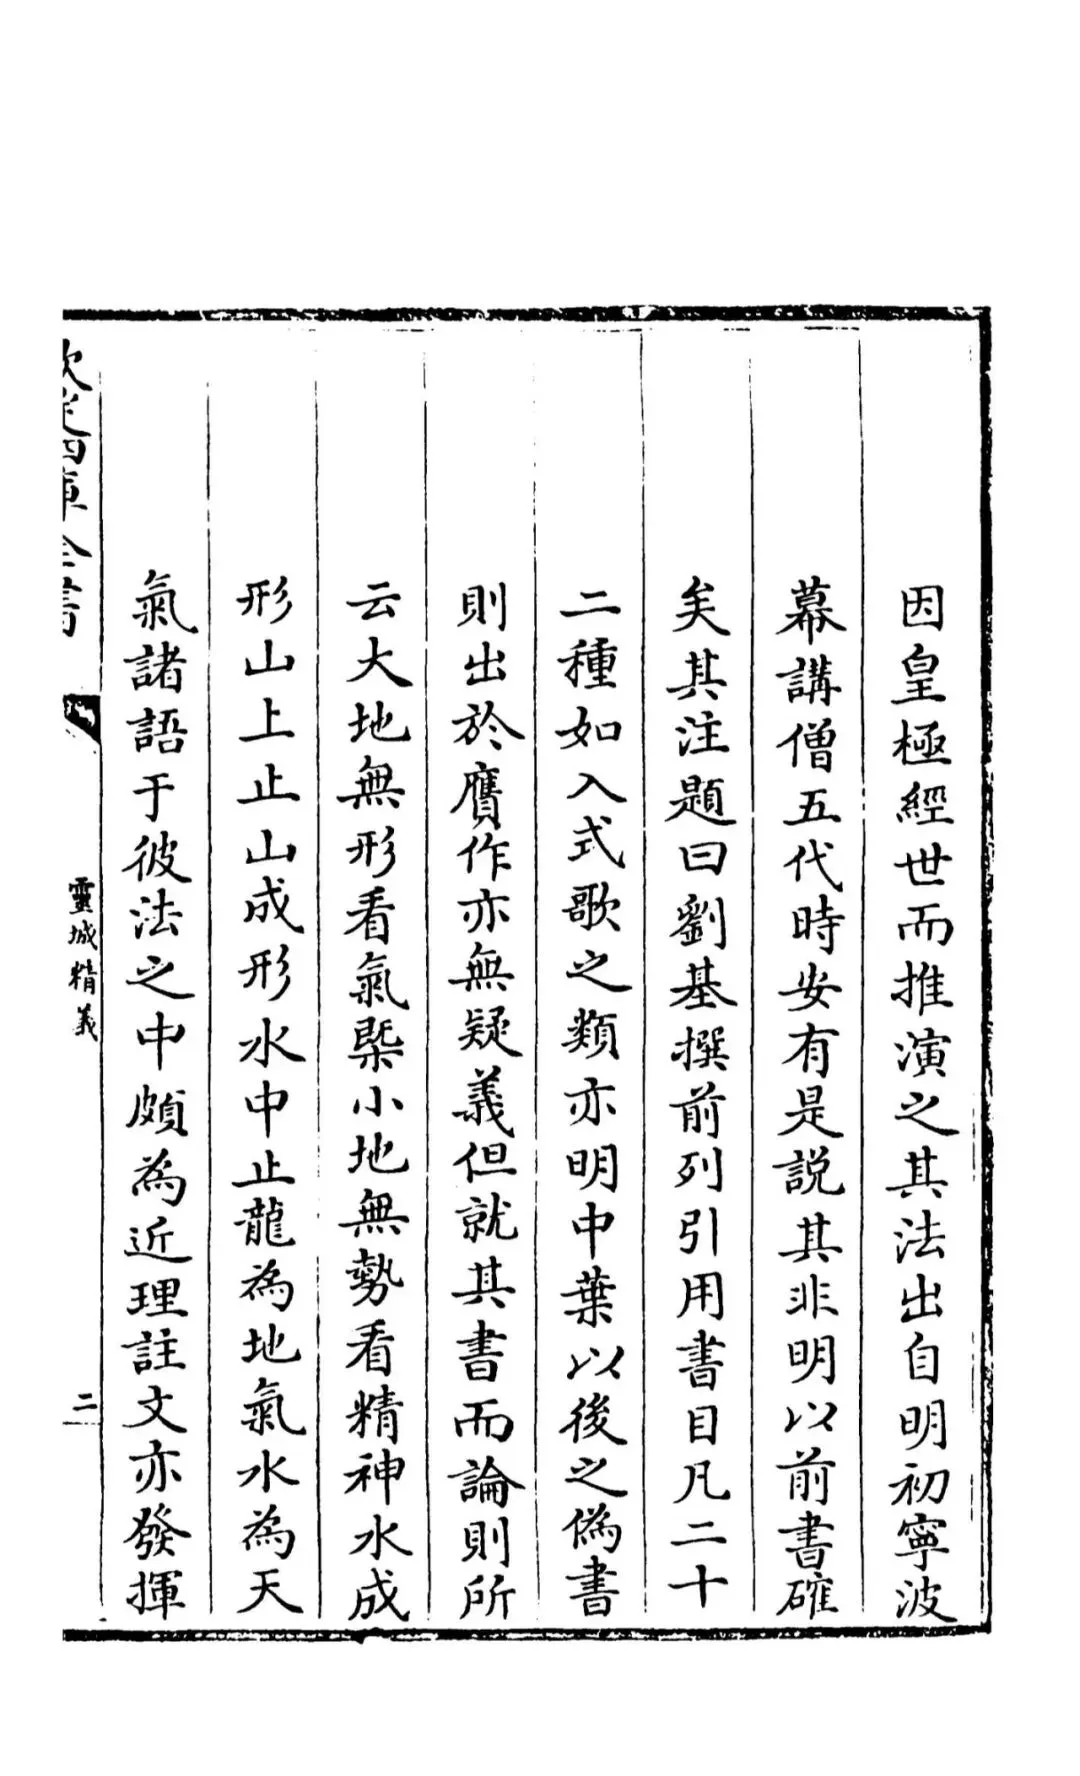 因皇極經世而推演之其法出自明初寧波
幕講僧五代時安有是説其非明以前書確
矣其注題曰劉基撰前列引用書目凡二十
二種如入式歌之類亦明中葉以後之偽書
則出於贋作亦無疑義但就其書而論則所
云大地無形看氣槩小地無勢看精神水成
形山上止山成形水中止龍為地氣水為天
氣諸語于彼法之中頗為近理註文亦發揮
欽定四庫全書
靈城精義
二